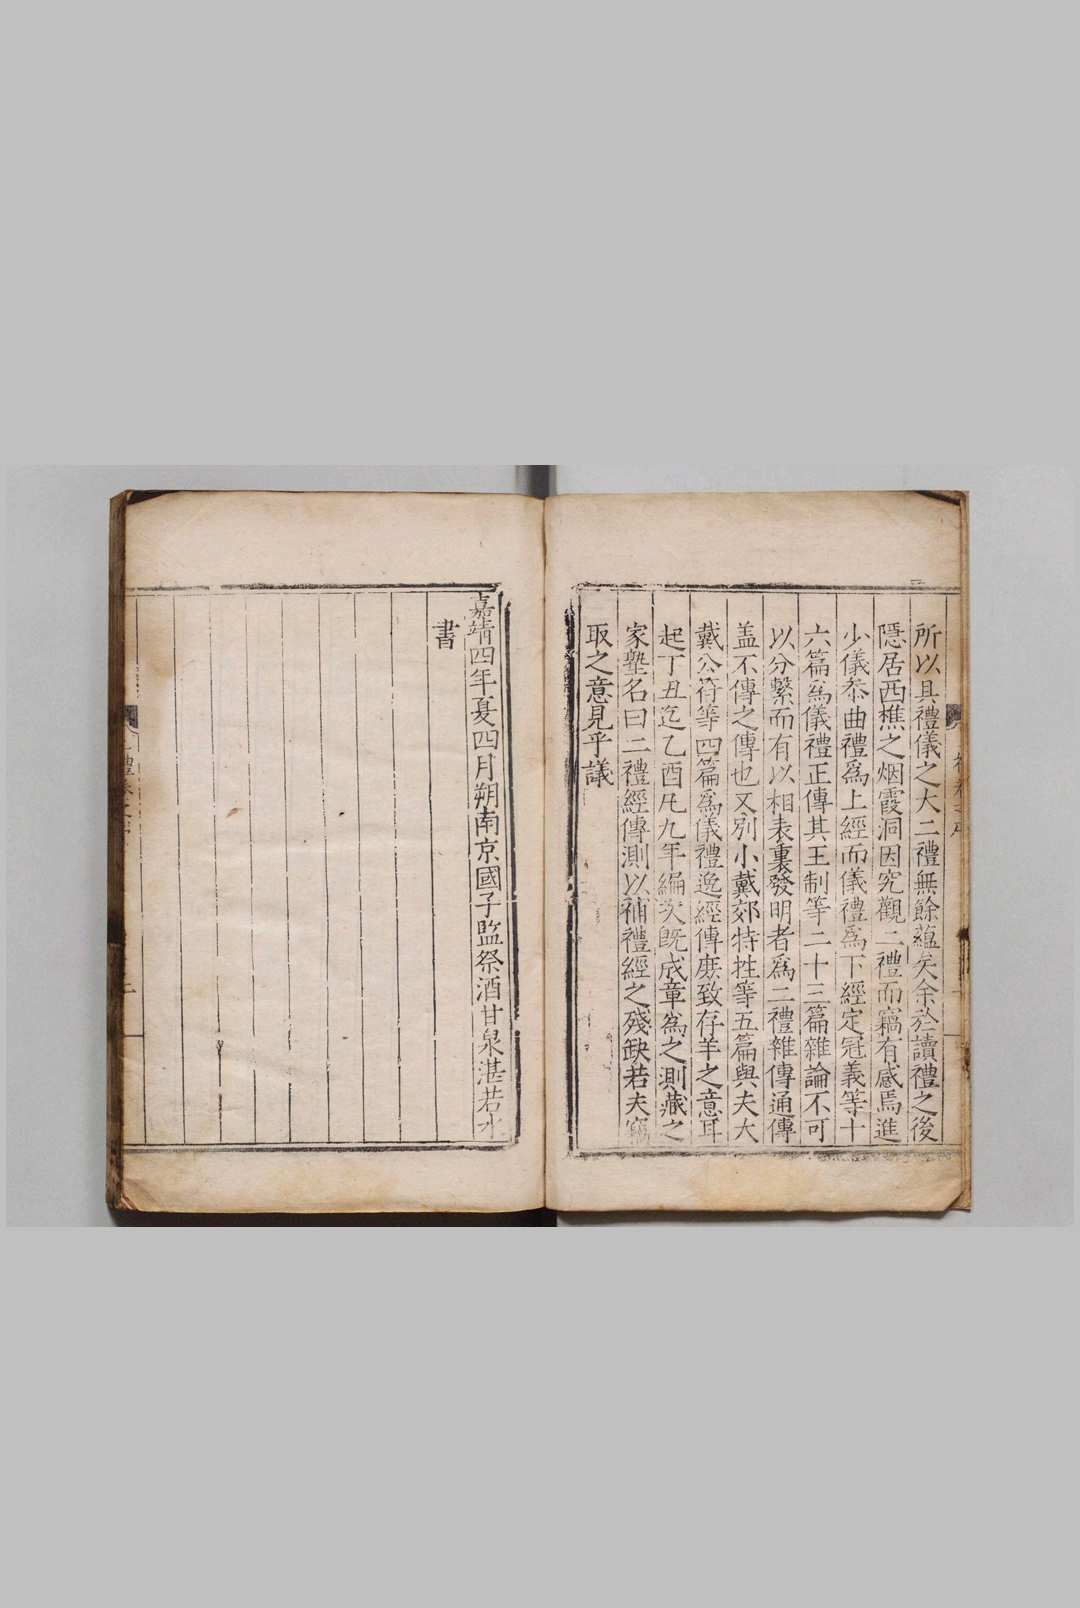 所以具禮儀之大二禮無餘蘊矣余於讀禮之後
隱居西樵之烟霞洞因究觀二禮而竊有感焉進
少儀叅曲禮爲上經而儀禮爲下經定冠義等十
六篇爲儀禮正傳其王制等二十三篇雜論不可
以分繫而有以相表裏發明者爲二禮雜傳通傳
盖不傳之傳也又別小戴郊特牲等五篇與夫大
戴公符等四篇爲儀禮逸經傳庻致存羊之意耳
起丁丑迄乙酉凡九年編次旣成章爲之測藏之
家塾名曰二禮經傳測以補禮經之殘缺若夫竊
取之意見乎議
嘉靖四年夏四月朔南京國子監祭酒甘泉湛若水
書